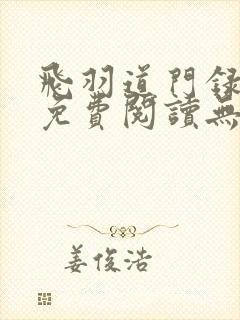 飛羽道門錄
免費閱讀無
姜俊浩